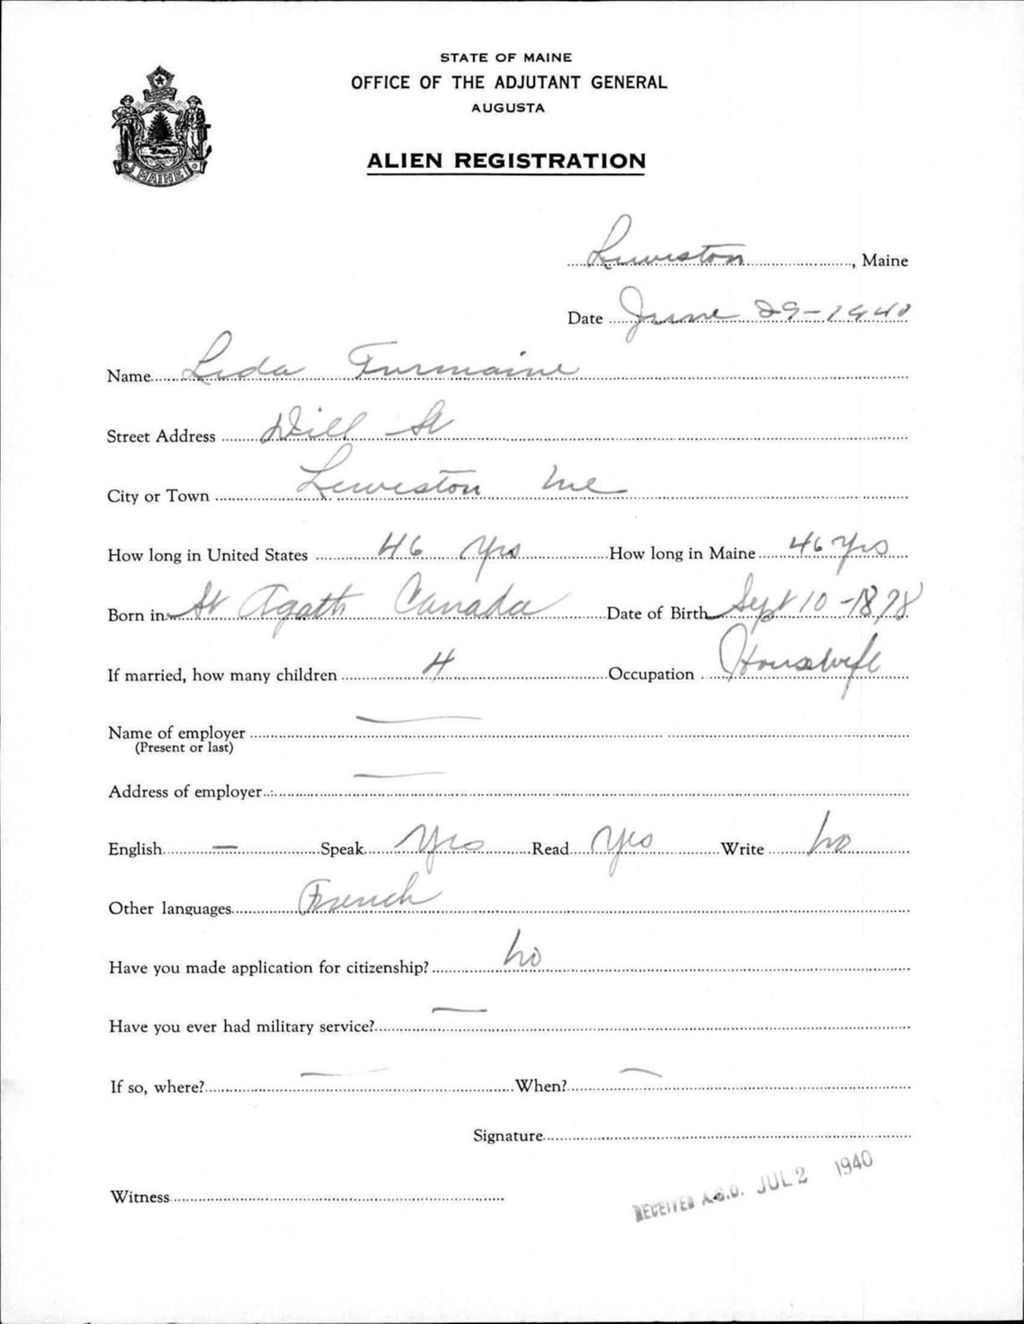 STATE OF MAINE
OFFICE OF THE ADJUTANT GENERAL
AUGUSTA
ALIEN REGISTRATION
MAINE
Lewiston, Maine
Date June 29-1940
Name Leda Furmaine
Street Address Dill St
City or Town Lewiston Me
How long in United States 46 Yrs How long in Maine 46 Yrs
Born in St Agath Canada Date of Birth Sept 10-1878
If married, how many children 4 Occupation Housewife
Name of employer —
(Present or last)
Address of employer —
English — Speak Yes Read Yes Write No
Other languages French
Have you made application for citizenship? No
Have you ever had military service? —
If so, where? — When? —
Signature
RECEIVED A.G.O. JUL 2 1940
Witness